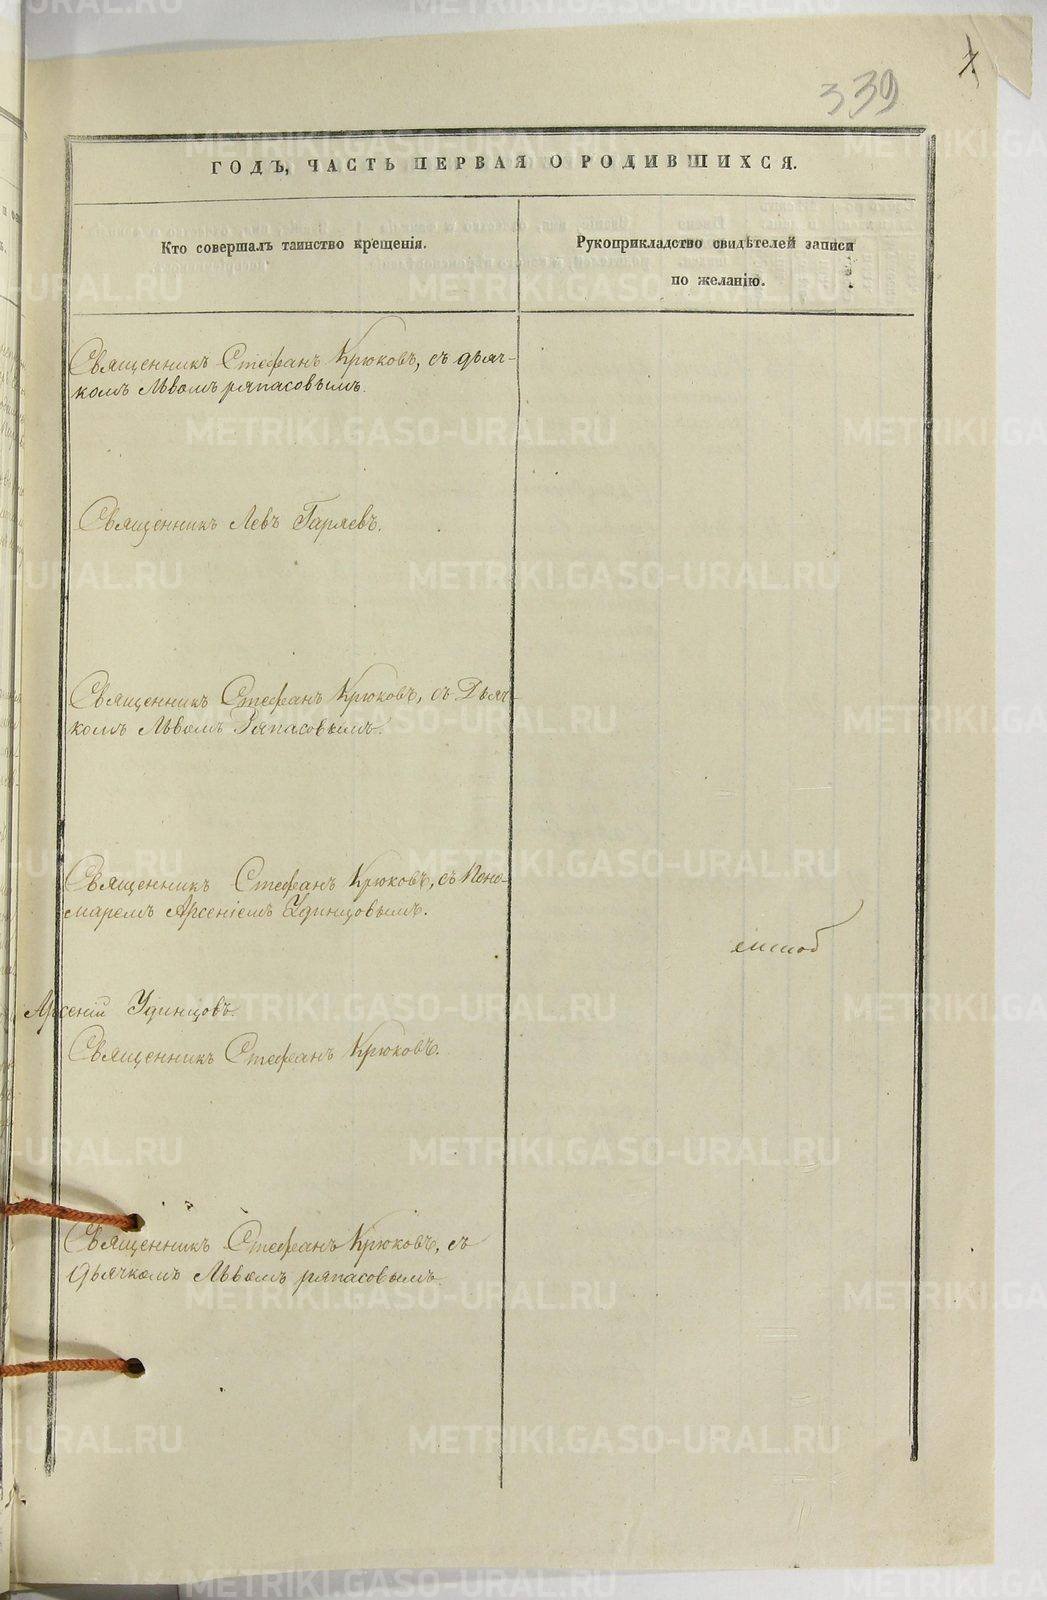 7.
339
ГОДЪ, ЧАСТЬ ПЕРВАЯ О РОДИВШИХСЯ.
Кто совершалъ таинство крещенія.
Рукоприкладство свидѣтелей записи
по желанію.
Священникъ Стефанъ Крюковъ, съ дьяч-
комъ Львомъ ряпасовымъ.
Священникъ Левъ Гаряевъ.
Священникъ Стефанъ Крюковъ, съ Дьяч-
комъ Львомъ Ряпасовымъ.
Священникъ Стефанъ Крюковъ, съ Поно-
маремъ Арсеніемъ Удинцовымъ.
Арсеній Удинцовъ.
Священникъ Стефанъ Крюковъ.
Священникъ Стефанъ Крюковъ, съ
дьячкомъ Львомъ ряпасовымъ.
METRIKI.GASO-URAL.RU